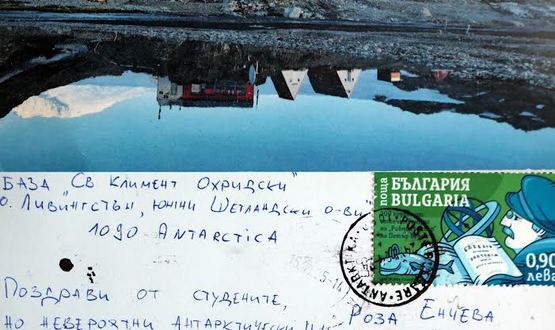 БАЗА "СВ. КЛИМЕНТ ОХРИДСКИ"
О. ЛИВИНГСТЪН, ЮЖНИ ШЕТЛАНДСКИ О-ВИ
1090 ANTARCTICA
поща
БЪЛГАРИЯ
BULGARIA
0,90
лева
ПОЗДРАВИ ОТ СТУДЕНИТЕ,
НО НЕВЕРОЯТНИ АНТАРКТИЧЕСКИ
РОЗА ЕНЧЕВА